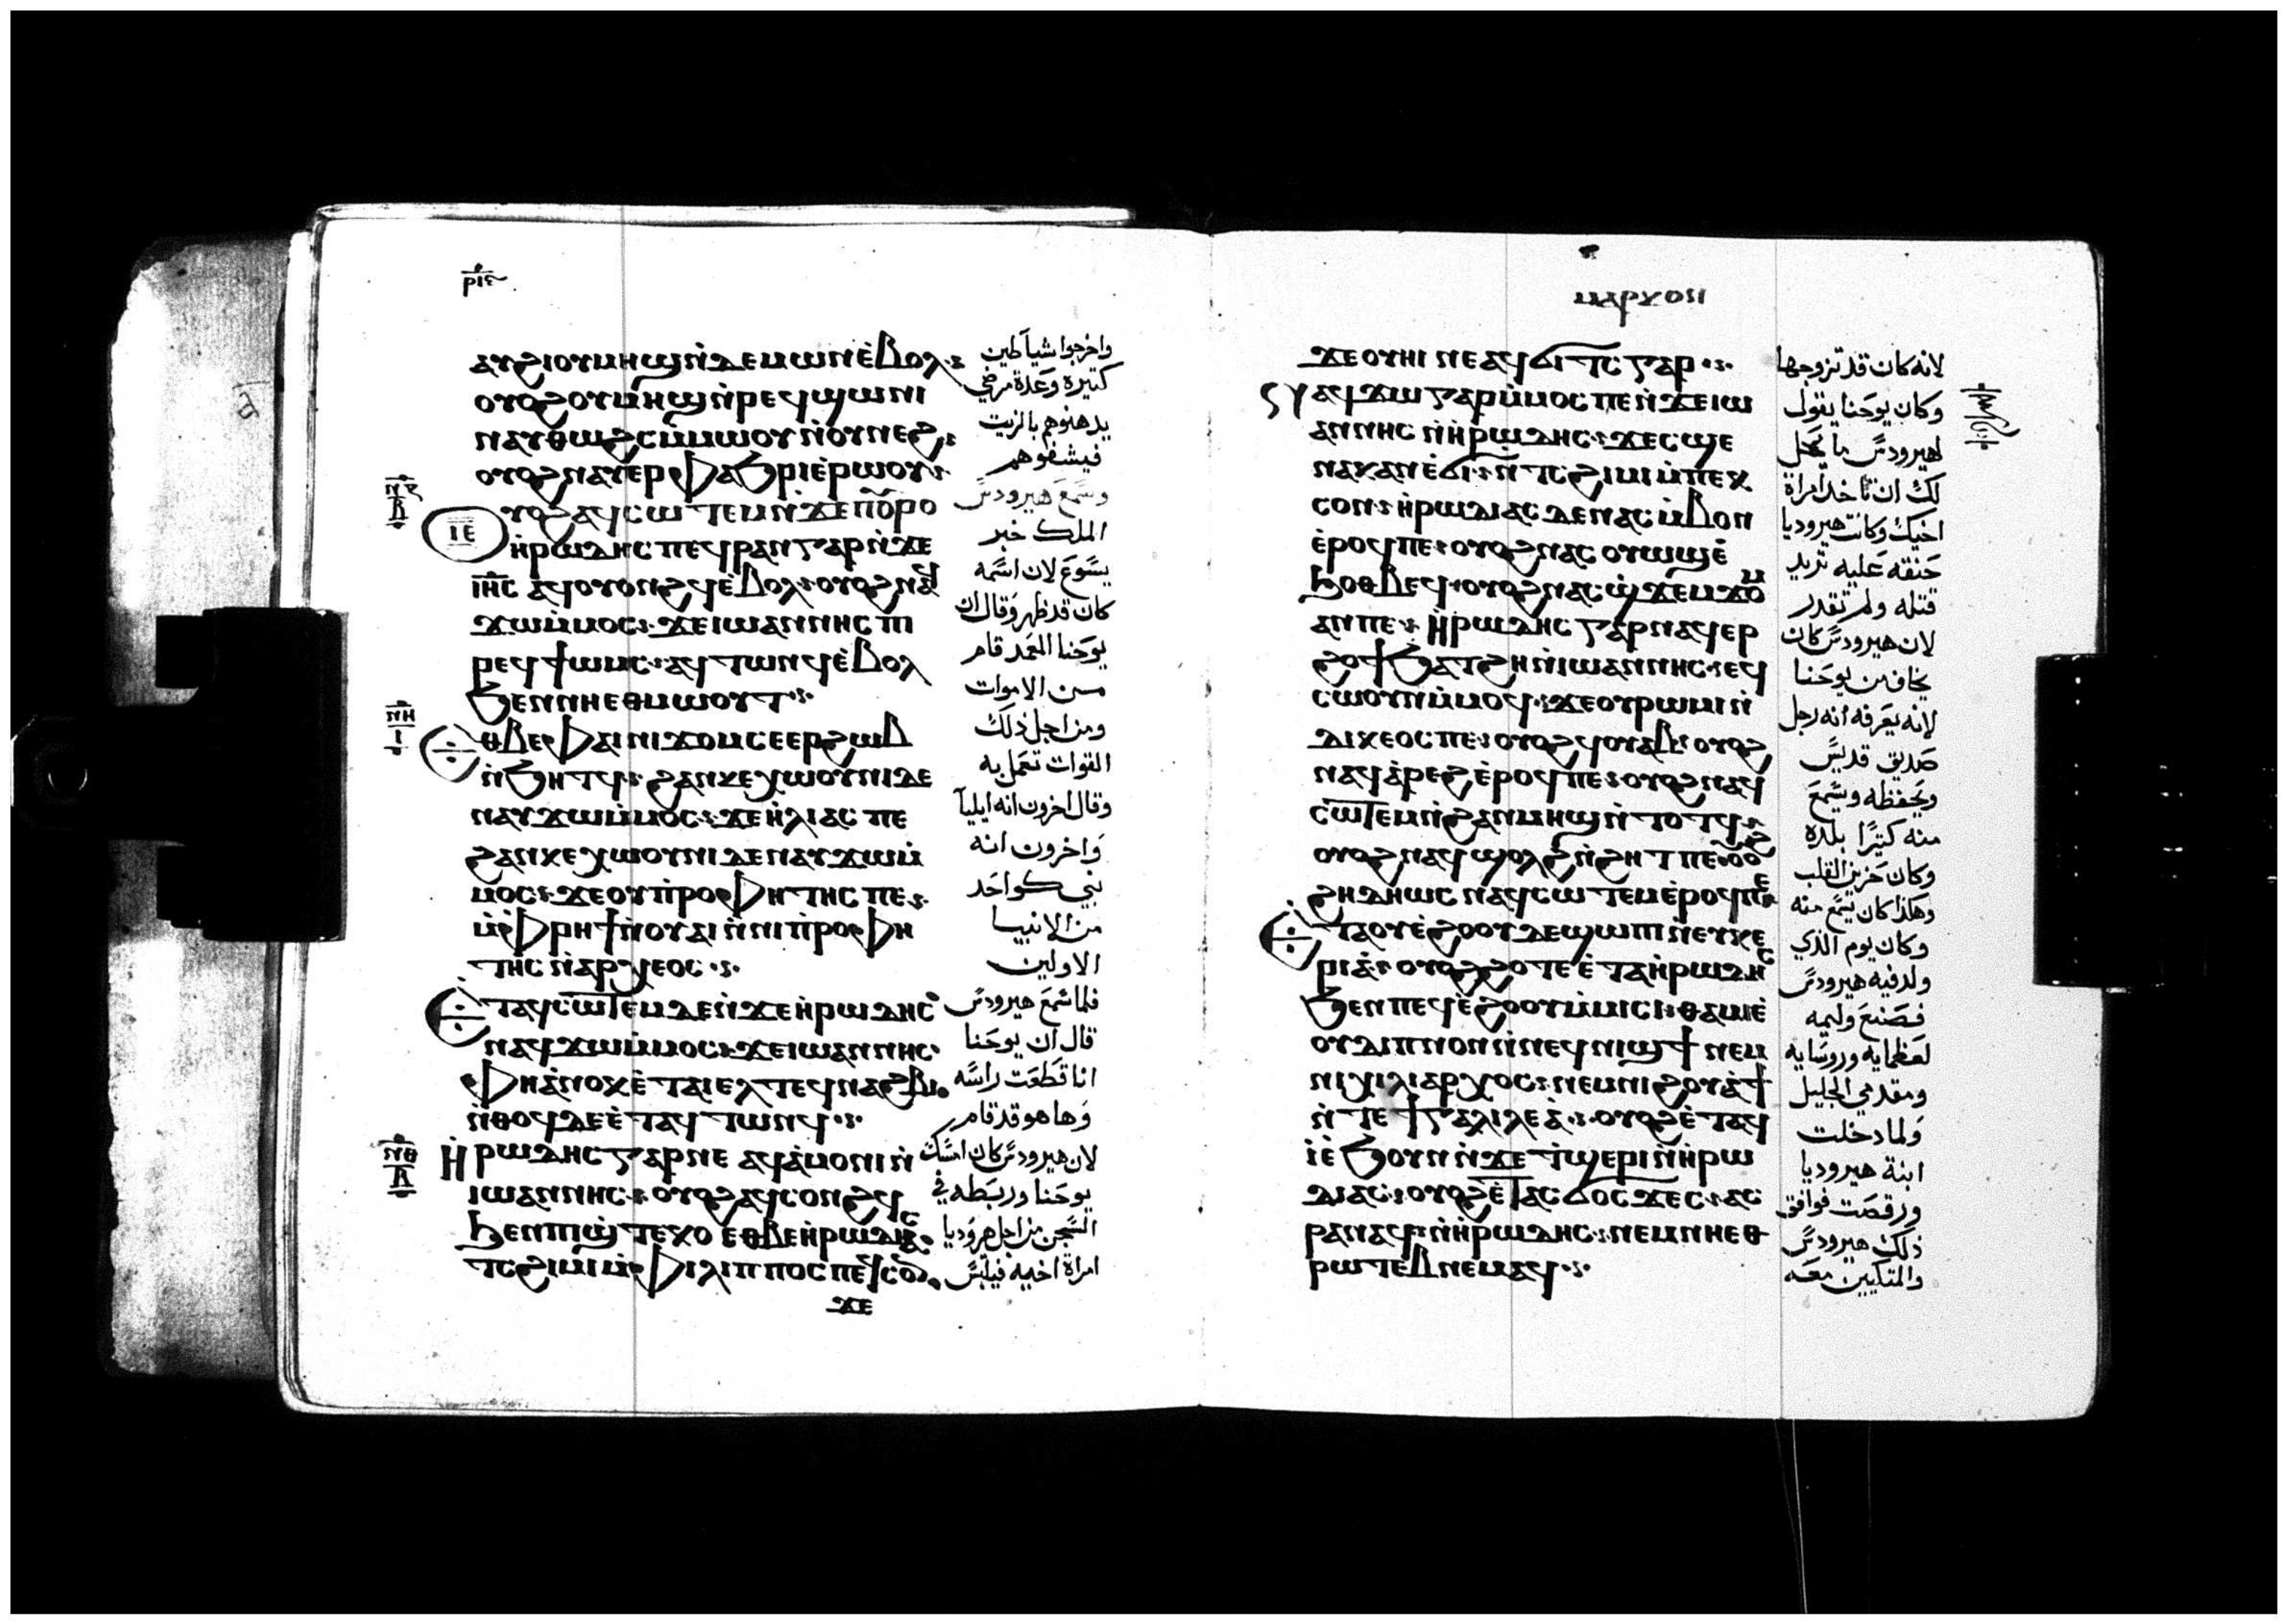 ⲣⲓⲋ
ⲁⲩϩⲓⲟⲩⲙⲏϣⲛ̇ⲇⲉⲙⲱⲛⲉ̇ⲃⲟⲗ
ⲟⲩⲟϩⲟⲩⲙⲏϣⲛ̇ⲣⲉϥϣⲱⲛⲓ
ⲛⲁⲩⲑⲱϩⲥⲙ̇ⲙⲱⲟⲩⲛ̇ⲟⲩⲛⲉϩ
ⲟⲩⲟϩⲛⲁⲩⲉⲣⲫⲁϧⲣⲓⲉ̇ⲣⲱⲟⲩ
ⲟⲩⲟϩⲁϥⲥⲱⲧⲉⲙⲛ̇ϫⲉⲡⲟⲩⲣⲟ
ⲓⲉ
ⲏ̇ⲣⲱⲇⲏⲥⲡⲉϥⲣⲁⲛⲅⲁⲣⲛ̇ϫⲉ
ⲓⲏⲥ ⲁϥⲟⲩⲟⲛϩϥⲉ̇ⲃⲟⲗ ⲟⲩⲟϩⲛⲁϥ
ϫⲱⲙ̇ⲙⲟⲥ ϫⲉⲓⲱⲁⲛⲛⲏⲥⲡⲓ
ⲣⲉϥϯⲱⲙⲥ ⲁϥⲧⲱⲛϥⲉ̇ⲃⲟⲗ
ϧⲉⲛⲛⲏⲉⲑⲙⲱⲟⲩⲧ
ⲉⲑⲃⲉⲫⲁⲓⲛⲓϫⲟⲙⲥⲉⲉⲣϩⲱⲃ
ⲛ̇ϧⲏⲧϥ ϩⲁⲛⲕⲉⲭⲱⲟⲩⲛⲓⲇⲉ
ⲛⲁⲩϫⲱⲙ̇ⲙⲟⲥ ϫⲉⲏ̇ⲗⲓⲁⲥ ⲡⲉ
ϩⲁⲛⲕⲉⲭⲱⲟⲩⲛⲓⲇⲉⲛⲁⲩϫⲱⲙ̇
ⲙⲟⲥ ϫⲉⲟⲩⲡ̇ⲣⲟⲫⲏⲧⲏⲥ ⲡⲉ
ⲙ̇ⲫⲣⲏϯⲛ̇ⲟⲩⲁⲓⲛ̇ⲛⲓⲡ̇ⲣⲟⲫⲏ
ⲧⲏⲥ ⲛ̇ⲁⲣⲭⲉⲟⲥ
ⲉ̇ⲧⲁϥⲥⲱⲧⲉⲙⲇⲉⲛ̇ϫⲉⲏ̇ⲣⲱⲇⲏⲥ
ⲛⲁϥϫⲱⲙ̇ⲙⲟⲥ ϫⲉⲓⲱⲁⲛⲛⲏⲥ
ⲫⲏⲁ̇ⲛⲟⲕⲉ̇ⲧⲁⲓⲉⲗⲧⲉϥⲛⲁϩⲃⲓ
ⲛ̇ⲑⲟϥⲇⲉⲉ̇ⲧⲁϥⲧⲱⲛϥ
ⲏ̇ⲣⲱⲇⲏⲥⲅⲁⲣⲛⲉ ⲁϥⲁ̇ⲙⲟⲛⲓⲛ̇
ⲓⲱⲁⲛⲛⲏⲥ ⲟⲩⲟϩⲁϥⲥⲟⲛϩϥ
ϧⲉⲛⲡⲓϣ̇ⲧⲉⲕⲟ ⲉⲑⲃⲉⲏ̇ⲣⲱⲇⲓⲁⲥ
ⲧⲥϩⲓⲙⲓⲙ̇ⲫⲓⲗⲓⲡⲡⲟⲥⲡⲉϥⲥⲟⲛ
ϫⲉ
واخرجوا شياطين
كثيرة وعدة مرضي
يدهنوهم بالزيت
فيشفوهم
وسمع هيرودس
الملك خبر
يسوع لان اسمه
كان قد ظهر وقال ان
يوحنا المعمد قام
من الاموات
ومن اجل ذلك
القوات تعمل به
وقال اخرون انه ايليا
واخرون انه
نبي كواحد
من الانبيا
الاولين
فلما سمع هيرودس
قال ان يوحنا
انا قطعت راسه
وها هو قد قام
لان هيرودس كان امسك
يوحنا وربطه في
السجن من اجل هروديا
امراة اخيه فيلبس
ⲙⲁⲣⲕⲟⲛ
ϫⲉⲟⲩⲏⲓ ⲛⲉⲁϥϭⲓⲧⲥ ⲅⲁⲣ
ⲛⲁϥϫⲱⲅⲁⲣⲙ̇ⲙⲟⲥⲡⲉⲛ̇ϫⲉⲓⲱ
ⲁⲛⲛⲏⲥ ⲛ̇ⲏ̇ⲣⲱⲇⲏⲥ ϫⲉⲥϣⲉ
ⲛⲁⲕⲁⲛⲉ̇ϭⲓ ⲛ̇ⲧⲥϩⲓⲙⲓⲙ̇ⲡⲉⲕ
ⲥⲟⲛ ⲏ̇ⲣⲱⲇⲓⲁⲥ ⲇⲉⲛⲁⲥⲙ̇ⲃⲟⲛ
ⲉ̇ⲣⲟϥⲡⲉ ⲟⲩⲟϩⲛⲁⲥⲟⲩⲱϣⲉ̇
ϧⲟⲑⲃⲉϥ ⲟⲩⲟϩⲛⲁⲥϣ̇ϫⲉⲙϫⲟⲙ
ⲁⲛⲡⲉ ⲏ̇ⲣⲱⲇⲏⲥ ⲅⲁⲣⲛⲁϥⲉⲣ
ϩⲟϯϧⲁⲧϩⲏⲛ̇ⲓⲱⲁⲛⲛⲏⲥ ⲉϥ
ⲥⲱⲟⲩⲛⲙ̇ⲙⲟϥ ϫⲉⲟⲩⲣⲱⲙⲓⲛ̇
ⲇⲓⲕⲉⲟⲥⲡⲉ ⲟⲩⲟϩϥⲟⲩⲁⲃ ⲟⲩⲟϩ
ⲛⲁϥⲁ̇ⲣⲉϩⲉ̇ⲣⲟϥⲡⲉ ⲟⲩⲟϩⲛⲁϥ
ⲥⲱⲧⲉⲙⲛ̇ϩⲁⲛⲙⲏϣⲛ̇ⲧⲟⲧϥ
ⲟⲩⲟϩⲛⲁϥϣⲟⲗϩⲛ̇ϩⲏⲧⲡⲉ ⲟⲩⲟϩ
ϩⲏⲇⲏⲱⲥ ⲛⲁϥⲥⲱⲧⲉⲙⲉ̇ⲣⲟϥⲡⲉ
ⲉ̇ⲧⲁⲟⲩⲉ̇ϩⲟⲟⲩⲇⲉϣⲱⲡⲓⲛ̇ⲉⲩⲕⲉ
ⲣⲓⲁ̇ ⲟⲩⲟϩϩⲟⲧⲉⲉ̇ⲧⲁⲏ̇ⲣⲱⲇⲏⲥ
ϧⲉⲛⲡⲉϥⲉ̇ϩⲟⲟⲩⲙ̇ⲙⲓⲥⲓ ⲑⲁⲙⲓⲉ̇
ⲟⲩⲇⲓⲡⲛⲟⲛⲛ̇ⲛⲉϥⲛⲓϣϯ ⲛⲉⲙ
ⲛⲓⲭⲓⲗⲓⲁⲣⲭⲟⲥ ⲛⲉⲙⲛⲓϩⲟⲩⲁ̇ϯ
ⲛ̇ⲧⲉϯⲅⲁⲗⲓⲗⲉⲁ̇ ⲟⲩⲟϩⲉ̇ⲧⲁⲥ
ⲓ̇ⲉ̇ϧⲟⲩⲛⲛ̇ϫⲉⲧ̇ϣⲉⲣⲓⲛ̇ⲏ̇ⲣⲱ
ⲇⲓⲁⲥ ⲟⲩⲟϩⲉ̇ⲧⲁⲥϭⲟⲥϫⲉⲥ ⲁⲥ
ⲣⲁⲛⲁϥⲛ̇ⲏ̇ⲣⲱⲇⲏⲥ ⲛⲉⲙⲛⲏⲉⲑ
ⲣⲱⲧⲉⲃⲛⲉⲙⲁϥ
لانه كان قد تزوجها
وكان يوحنا يقول
لهيرودس ما يحل
لك ان تاخذ امراة
اخيك وكانت هيروديا
حنقه عليه تريد
قتله ولم تقدر
لان هيرودس كان
يخاف من يوحنا
لانه يعرفه انه رجل
صديق قديس
ويحفظه ويسمع
منه كثيرا بلده
وكان حزين القلب
وهكذا كان يسمع منه
وكان يوم الذي
ولد فيه هيرودس
فصنع وليمه
لعظمايه وروسايه
ومقدمي الجليل
ولما دخلت
ابنة هيروديا
ورقصت فوافق
ذلك هيرودس
والمتكيين معه